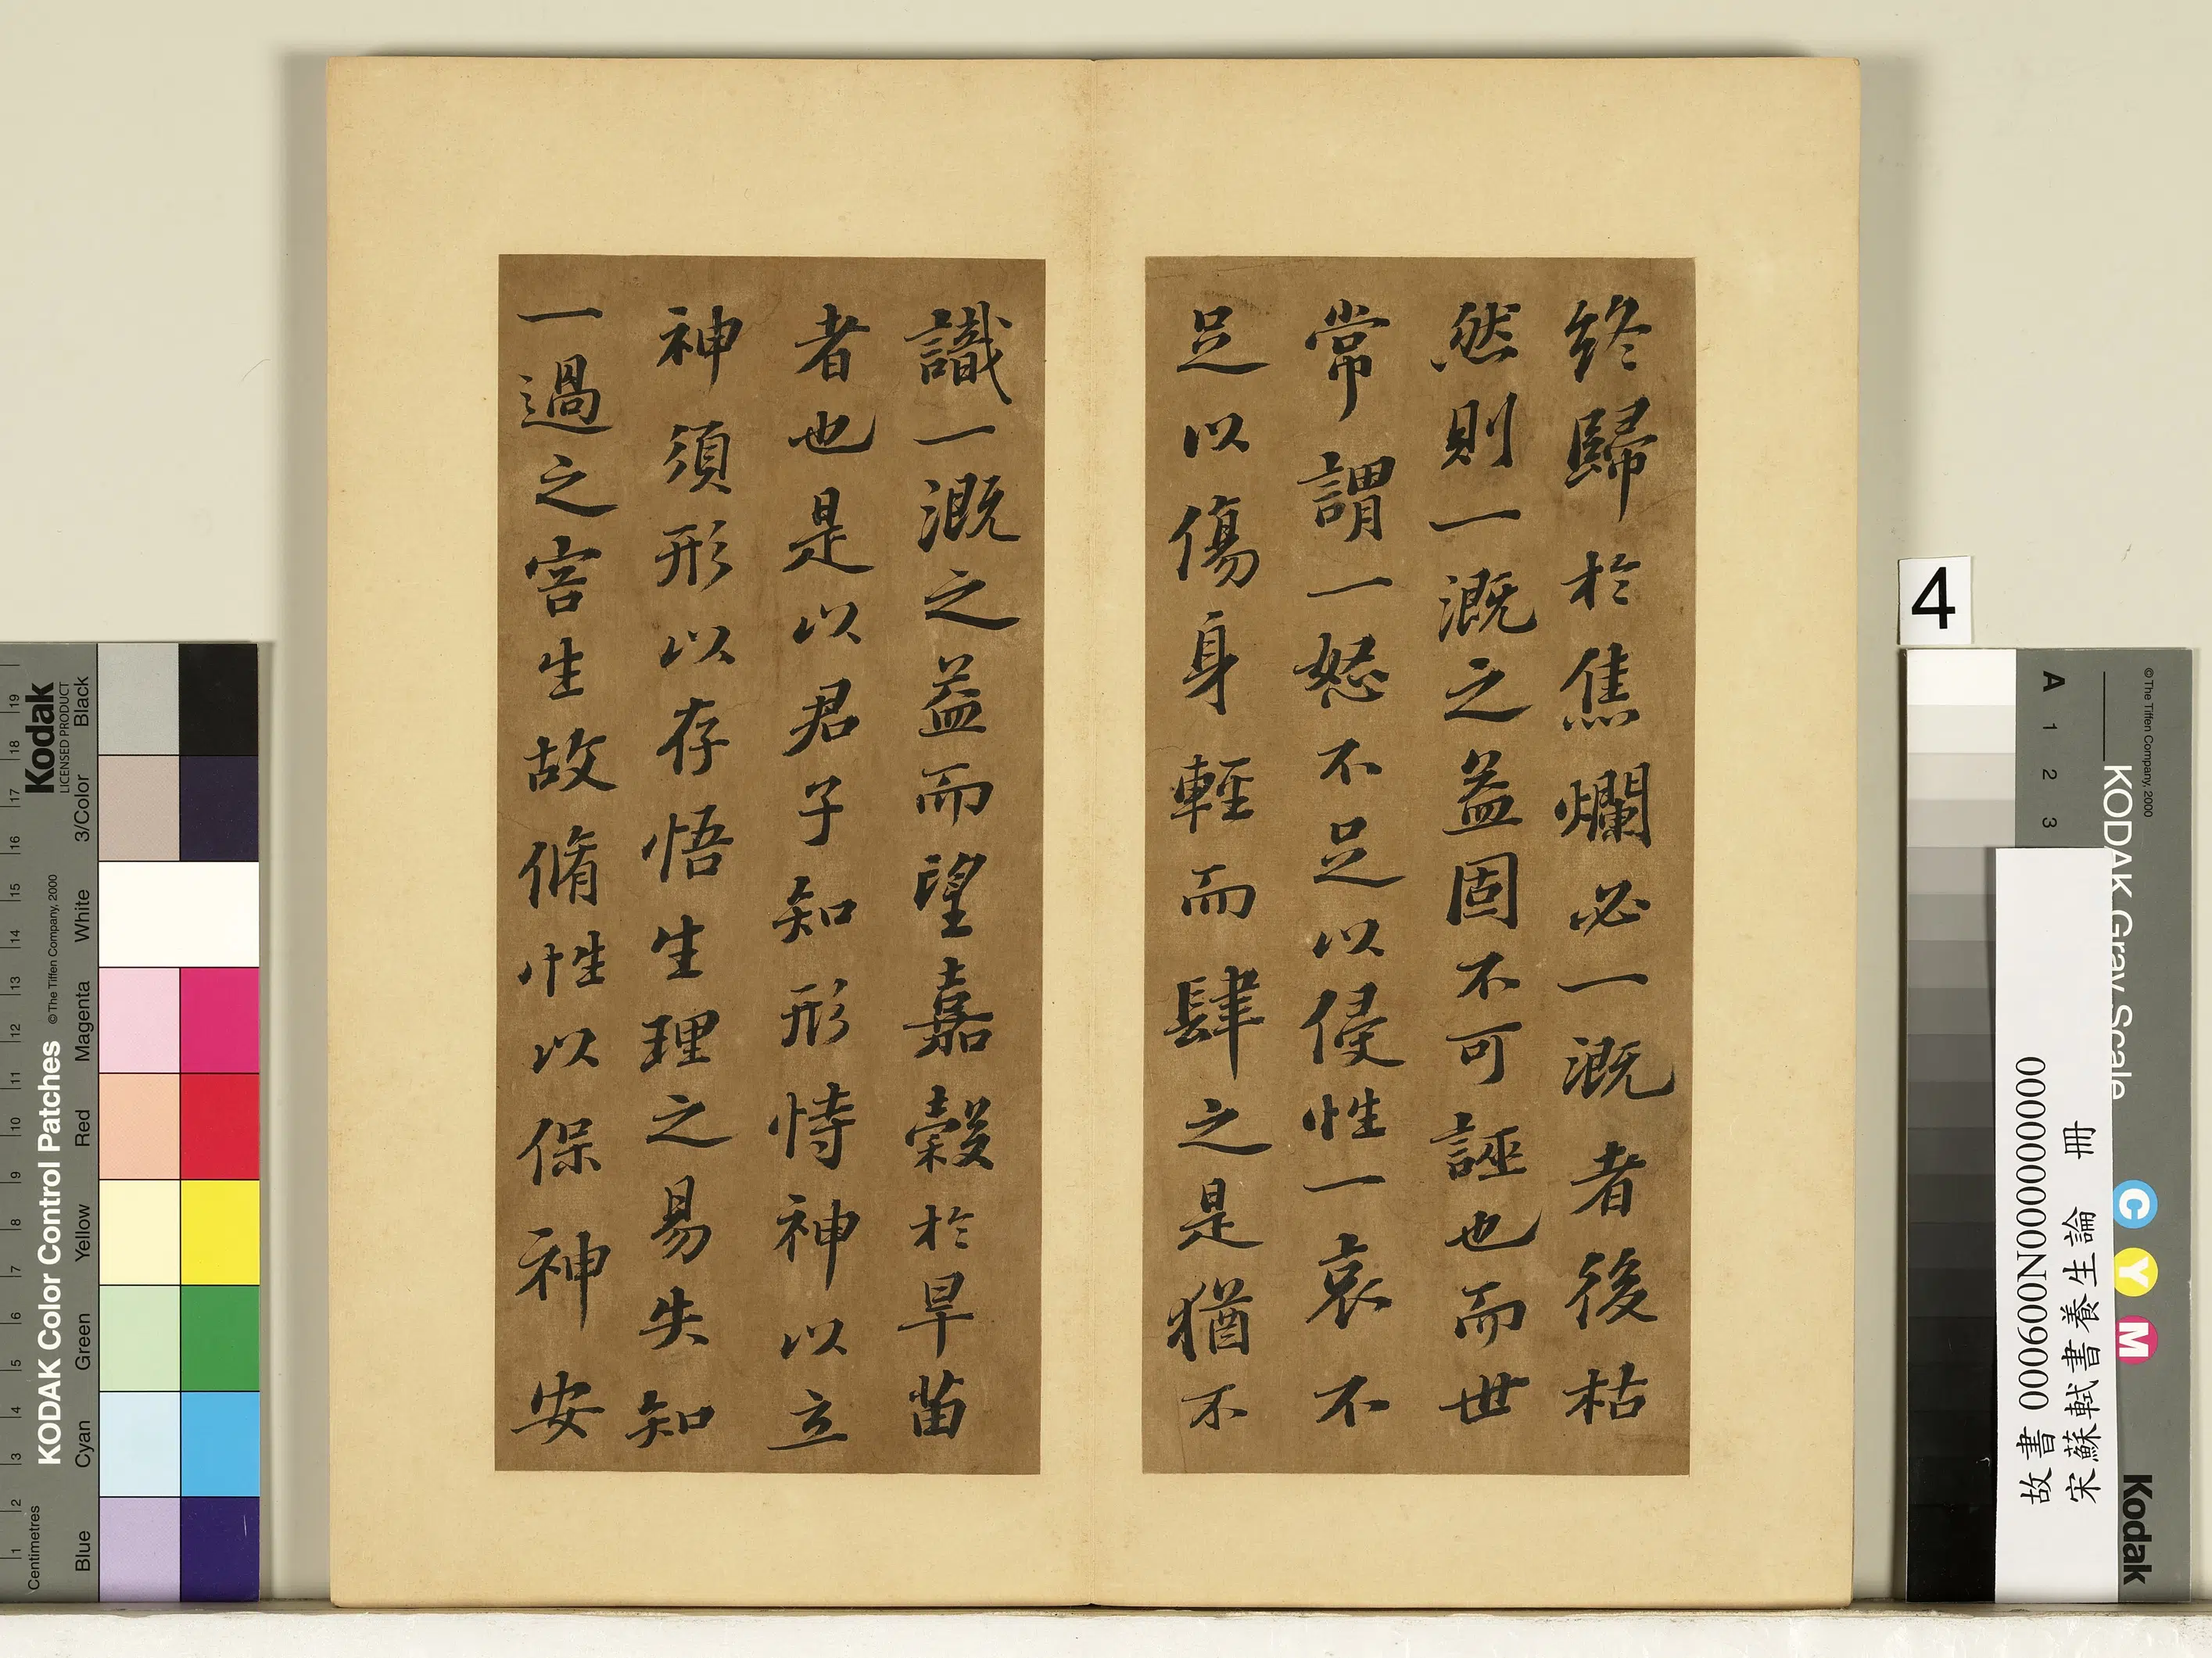 終歸於焦爛必一溉者後枯
然則一溉之益固不可誣也而世
常謂一怒不足以侵性一哀不
足以傷身輕而肆之是猶不
識一溉之益而望嘉穀於旱苗
者也是以君子知形恃神以立
神須形以存悟生理之易失知
一過之害生故脩性以保神安
4
故書 000600N000000000
宋蘇軾書養生論 冊
Kodak
LICENSED PRODUCT
KODAK Color Control Patches
©The Tiffen Company, 2000
Centimetres
1 2 3 4 5 6 7 8 9 10 11 12 13 14 15 16 17 18 19
Blue
Cyan
Green
Yellow
Red
Magenta
White
3/Color
Black
©The Tiffen Company, 2000
KODAK Gray Scale
A 1 2 3
C Y M
Kodak